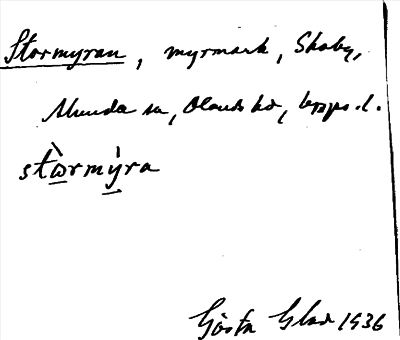 Stormyran, myrmark, Skoby,
Alunda sn, Olands hd, Upps. l.
stὼrmýra
Gösta Glad 1936